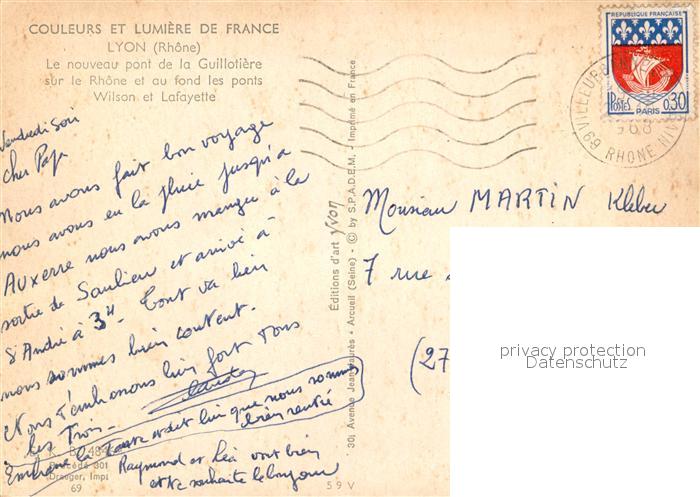 COULEURS ET LUMIÈRE DE FRANCE
LYON (Rhône)
Le nouveau pont de la Guillotière
sur le Rhône et au fond les ponts
Wilson et Lafayette
Vendredi Soir
Cher Papa
Nous avons fait bon voyage
nous avons eu la pluie jusqu'à
Auxerre nous avons mangé à la
sortie de Saulieu et arrivé à
St André à 3H. Tout va bien
nous sommes bien content.
Et nous t'embrassons bien fort tous
les Trois.
Embrasse la Tante et dit lui que nous sommes
bien rentré
Raymond et Léa vont bien
et te souhaite le bonjour
K. B. 48
Procédé 301
Draeger, Imp.
69
59V
Éditions d'art yvon
30, Avenue Jean-Jaurès • Arcueil (Seine) - © by S.P.A.D.E.M. - Imprimé en France
RÉPUBLIQUE FRANÇAISE
POSTES
0,30
PARIS
VILLEURBANNE
968
69 RHONE
Monsieur MARTIN Kleber
7 rue
(27
privacy protection
Datenschutz